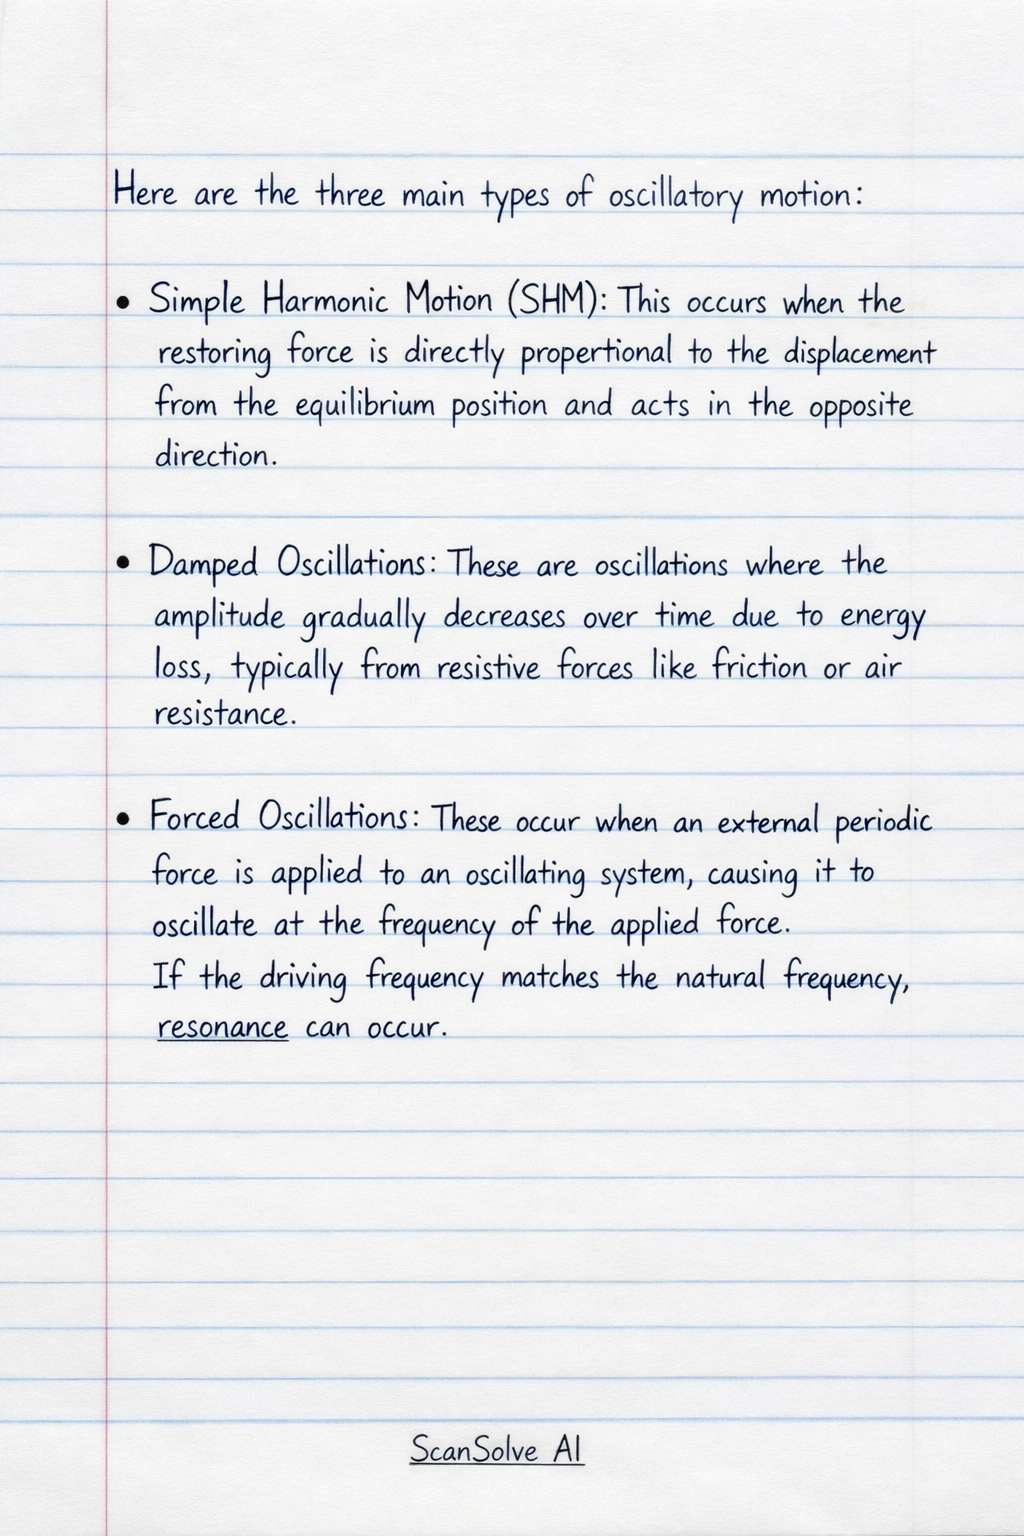 Here are the three main types of oscillatory motion:
• Simple Harmonic Motion (SHM): This occurs when the
restoring force is directly propertional to the displacement
from the equilibrium position and acts in the opposite
direction.
• Damped Oscillations: These are oscillations where the
amplitude gradually decreases over time due to energy
loss, typically from resistive forces like friction or air
resistance.
• Forced Oscillations: These occur when an external periodic
force is applied to an oscillating system, causing it to
oscillate at the frequency of the applied force.
If the driving frequency matches the natural frequency,
resonance can occur.
ScanSolve AI